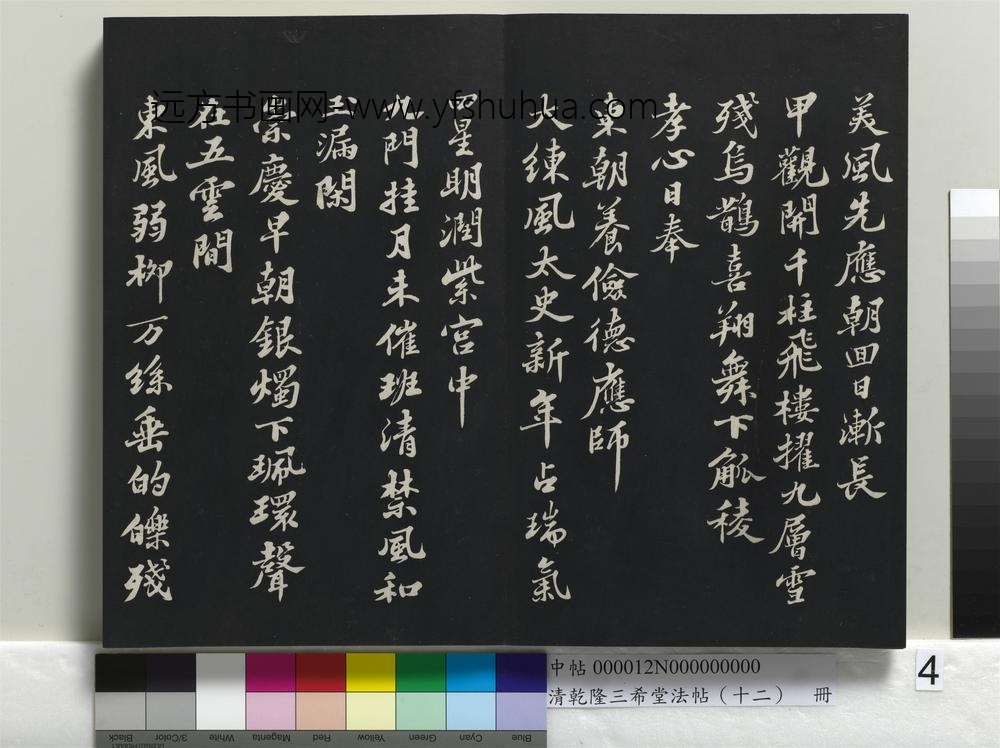 美風先應朝囬日漸長
甲觀開千柱飛樓擢九層雪
殘烏鵲喜翔舞下觚稜
孝心日奉
東朝養儉德應師
大練風太史新年占瑞氣
四星明潤紫宮中
九門挂月未催班清禁風和
玉漏閑
崇慶早朝銀燭下珮環聲
在五雲間
東風弱柳万絲垂的皪殘
远方书画网-www.yfshuhua.com
中帖 000012N000000000
清乾隆三希堂法帖（十二） 冊
4
Black 3/Color White Magenta Red Yellow Green Cyan Blue